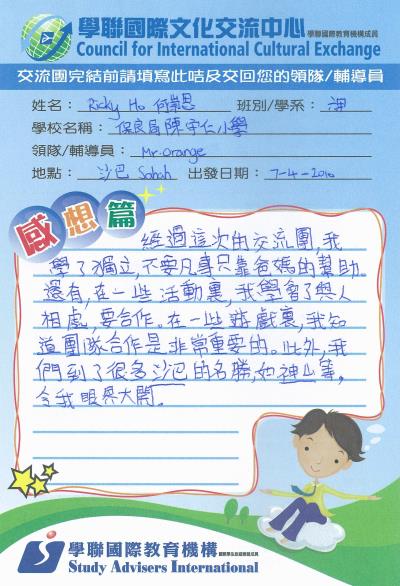 學聯國際文化交流中心 學聯國際教育機構成員
Council for International Cultural Exchange
交流團完結前請填寫此咭及交回您的領隊/輔導員
姓名： Ricky Ho 何崇恩 班別/學系：
學校名稱： 保良局陳守仁小學
領隊/輔導員： Mr. Orange
地點： 沙巴 Sabah 出發日期： 7-4-2010
感想篇
經過這次的交流團,我
學了獨立,不要凡事只靠爸媽的幫助。
還有,在一些活動裏,我學會了與人
相處,要合作。在一些遊戲裏,我知
道團隊合作是非常重要的。此外,我
們到了很多沙巴的名勝,如神山等,
令我眼界大開。
學聯國際教育機構
Study Advisers International